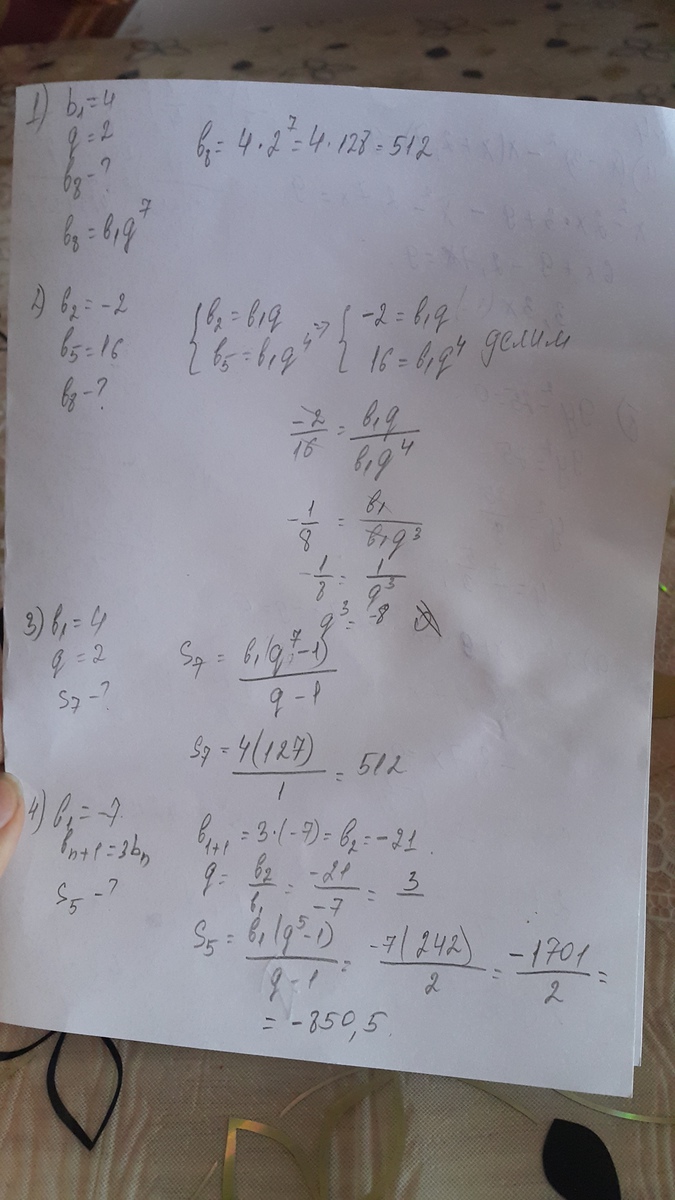 1) b₁ = 4
q = 2
b₈ - ?
b₈ = b₁q⁷
b₈ = 4 · 2⁷ = 4 · 128 = 512
2) b₂ = -2
b₅ = 16
b₈ - ?
{ b₂ = b₁q => { -2 = b₁q
b₅ = b₁q⁴ 16 = b₁q⁴ делим
-2/16 = b₁q/b₁q⁴
-1/8 = b₁/b₁q³
-1/8 = 1/q³
q³ = -8
3) b₁ = 4
q = 2
S₇ - ?
S₇ = b₁(q⁷-1)/q-1
S₇ = 4(127)/1 = 512
4) b₁ = -7
bₙ₊₁ = 3bₙ
S₅ - ?
b₁₊₁ = 3·(-7) = b₂ = -21.
q = b₂/b₁ = -21/-7 = 3
S₅ = b₁(q⁵-1)/q-1 = -7(242)/2 = -1701/2 =
= -850,5.